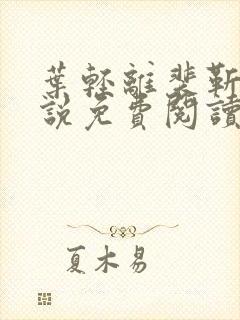 葉輕離裴靳
說免費閱讀
夏木易